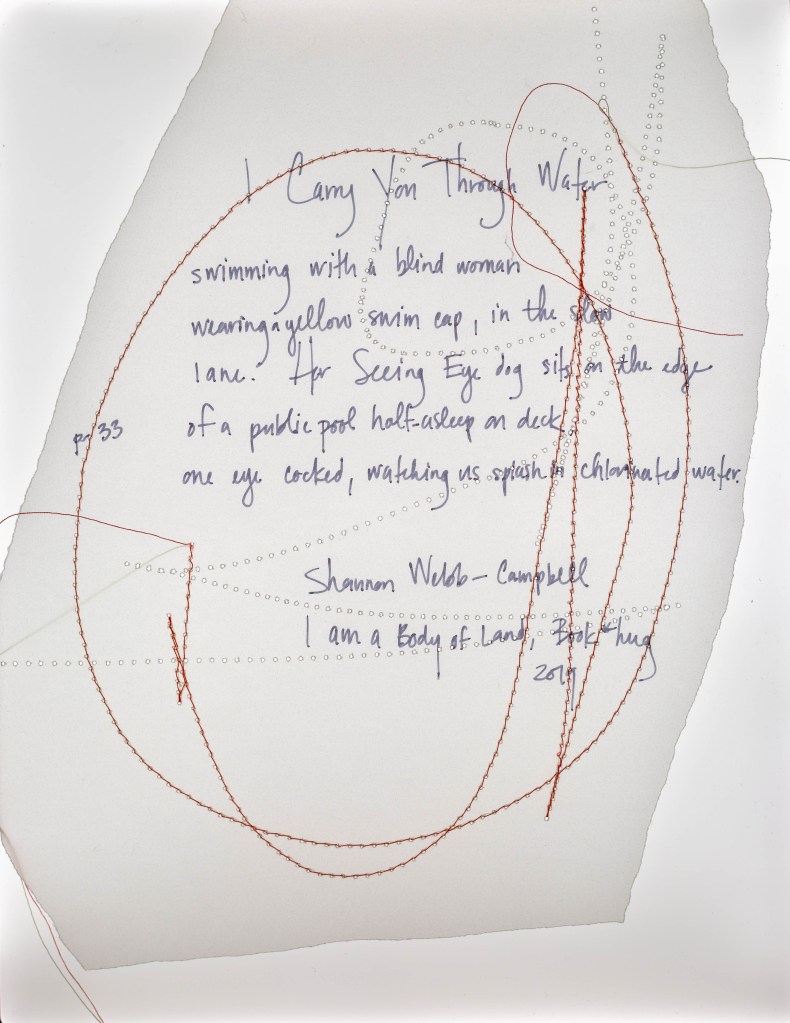 I Carry You Through Water
swimming with a blind woman
wearing a yellow swim cap, in the slow
lane. Her Seeing Eye dog sits on the edge
of a public pool half-asleep on deck
pg 33
one eye cocked, watching us splash in chlorinated water.
Shannon Webb-Campbell
I am a Body of Land, Book*hug
2019